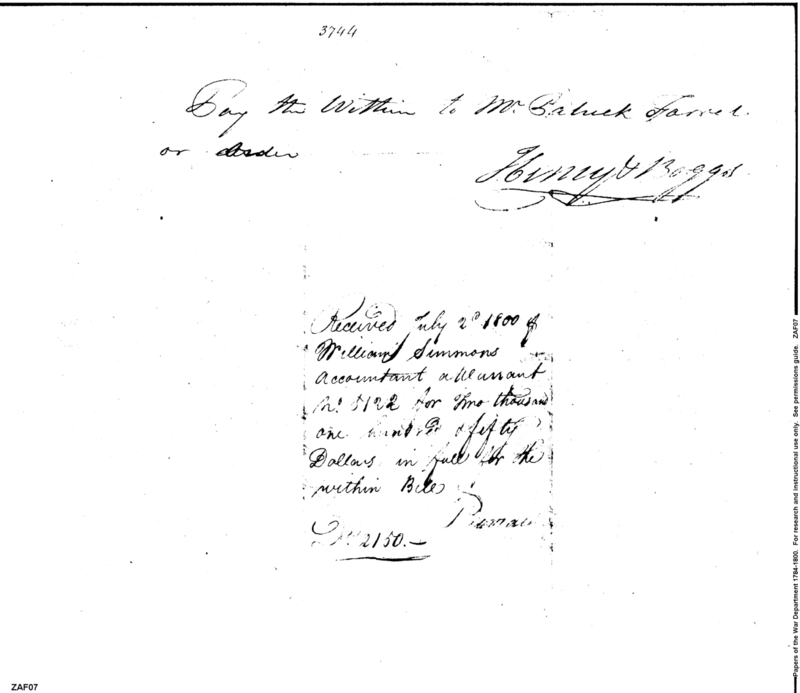 3744
Pay the Within to Mr. Patrick Farrel
or order
Henry & Boggs
Received July 2d 1800 of
William Simmons
Accountant a Warrant
No. 5122 for Two thousand
one hundred & fifty
Dollars in full for the
within Bill
2150.—
ZAF07
Papers of the War Department 1784-1800. For research and instructional use only. See permissions guide. ZAF07